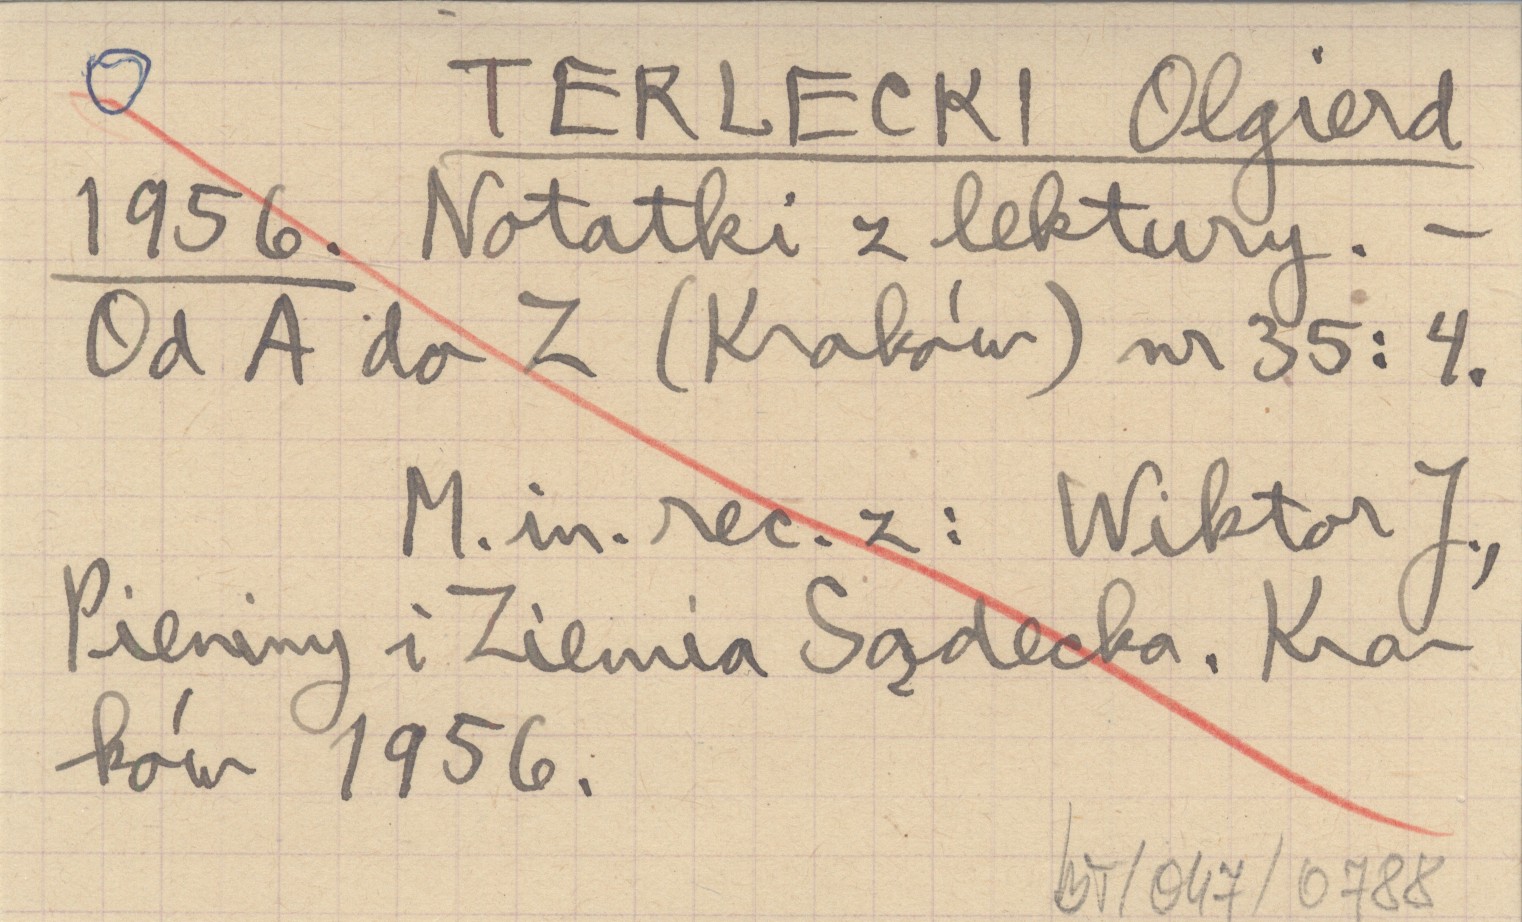 TERLECKI Olgierd
1956. Notatki z lektury. -
Od A do Z (Kraków) nr 35: 4.
M. in. rec. z: Wiktor J.,
Pieniny i Ziemia Sądecka. Kra-
ków 1956.
BT/047/0788